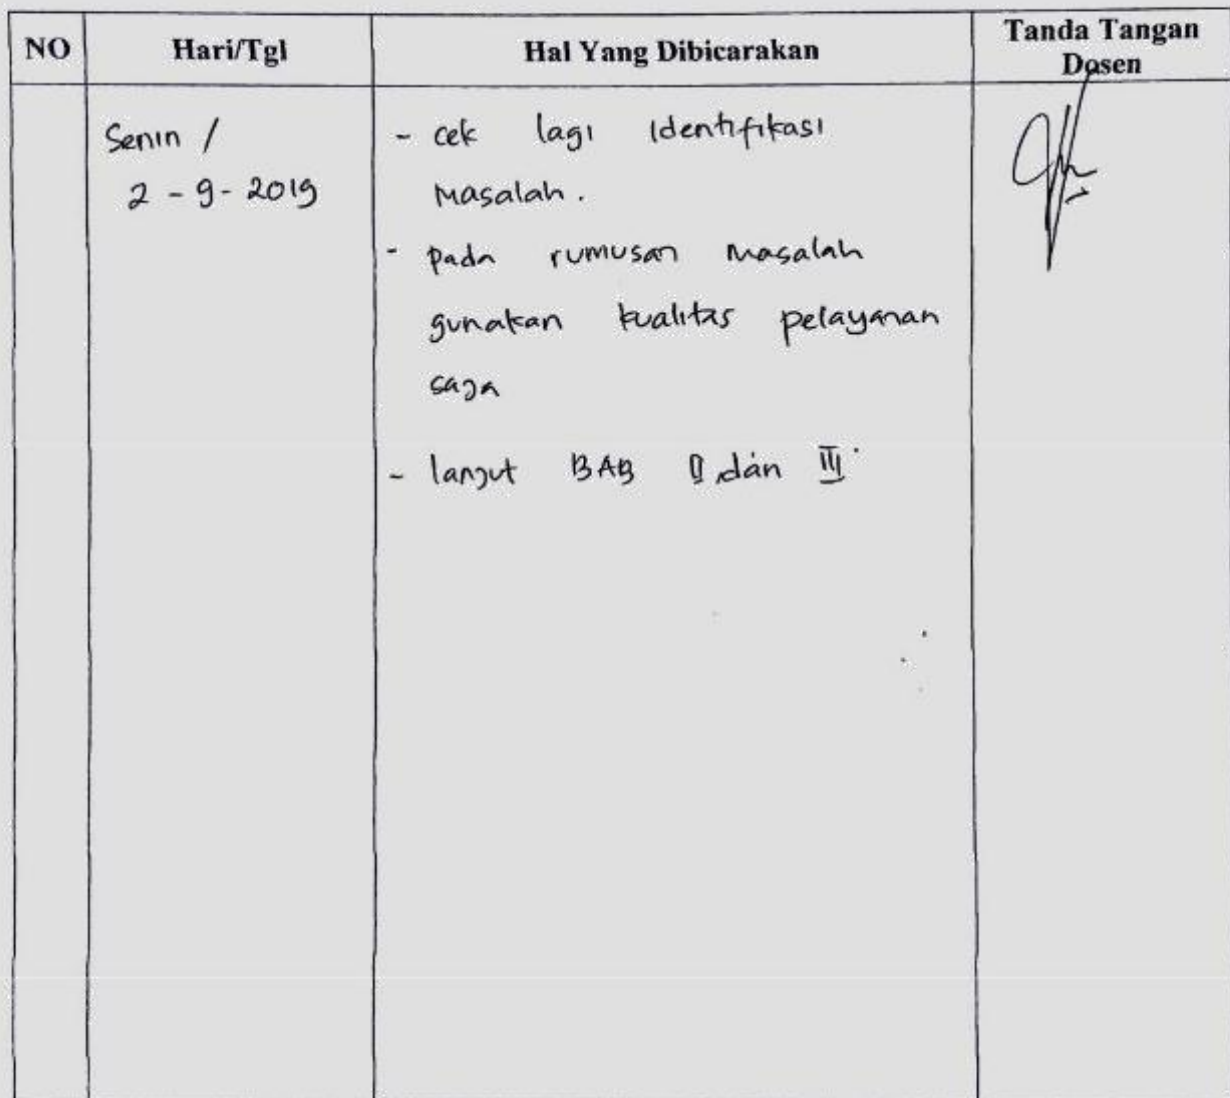 NO Hari/Tgl Hal Yang Dibicarakan Tanda Tangan
Dosen
Senin / - cek lagi identifikasi
2 - 9 - 2019 masalah.
- pada rumusan masalah
gunakan kualitas pelayanan
saja
- lanjut BAB II dan III